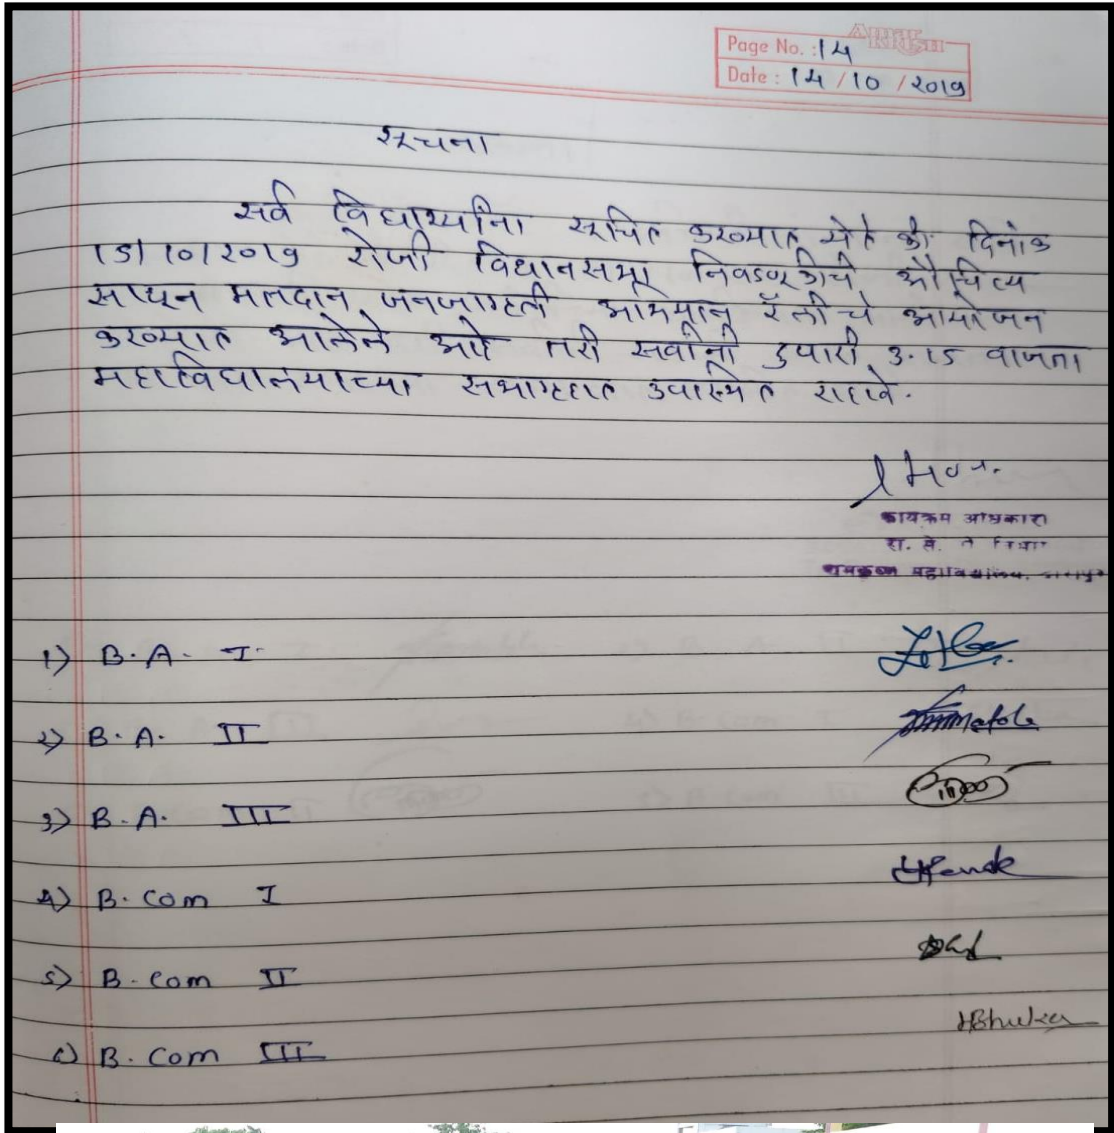 Page No. : 14
Date : 14 / 10 / 2019
सूचना
सर्व विद्यार्थ्यांना सूचित करण्यात येते की दिनांक
15/10/2019 रोजी विधानसभा निवडणूकीचे औचित्य
साधून मतदान जनजागृती अभियान रॅलीचे आयोजन
करण्यात आलेले आहे तरी सर्वांनी दुपारी 3.15 वाजता
महाविद्यालयाच्या सभागृहात उपस्थित राहावे.
कार्यक्रम अधिकारी
रा. से.
महाविद्यालय,
1) B.A. I
2) B.A. II
3) B.A. III
4) B.Com I
5) B.Com II
6) B.Com III